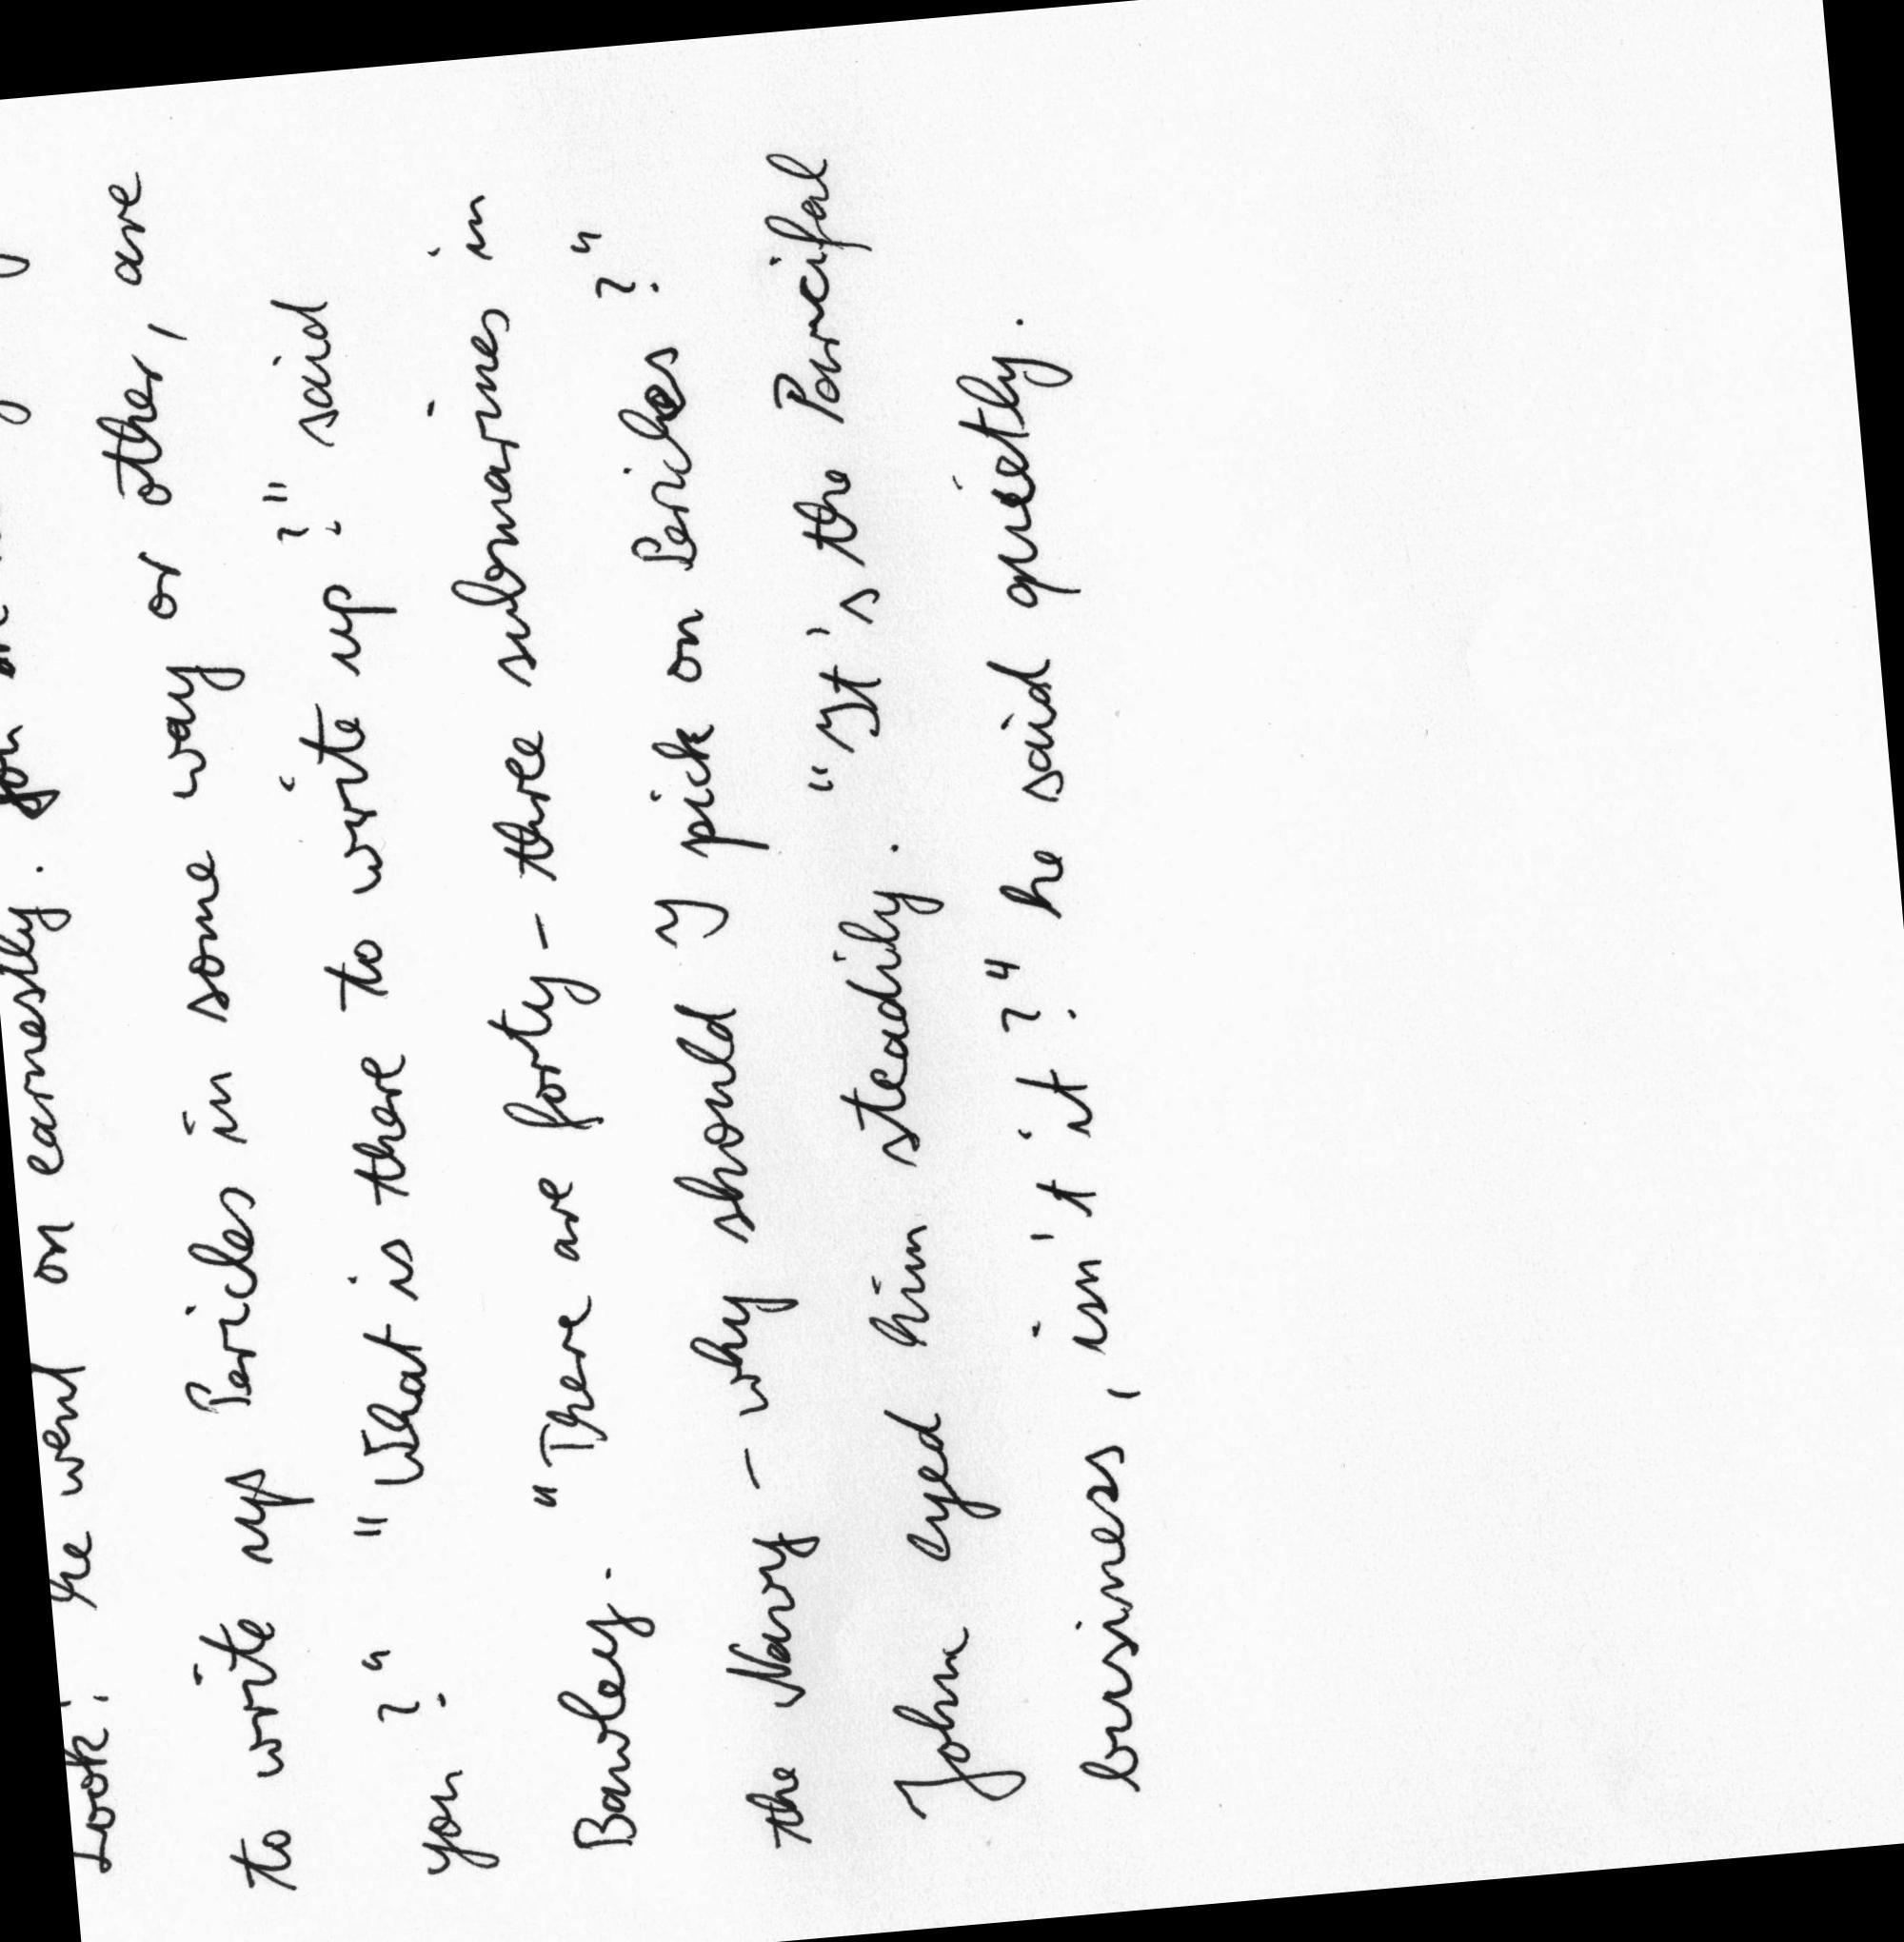 Look! he went on earnestly. you
to write up Pericles in some way or other, are
you?" "What is there to write up?" said
Bawley. "There are forty-three submarines in
the Navy - why should I pick on Pericles?"
John eyed him steadily. "It's the Parcifal
business, isn't it?" he said quietly.